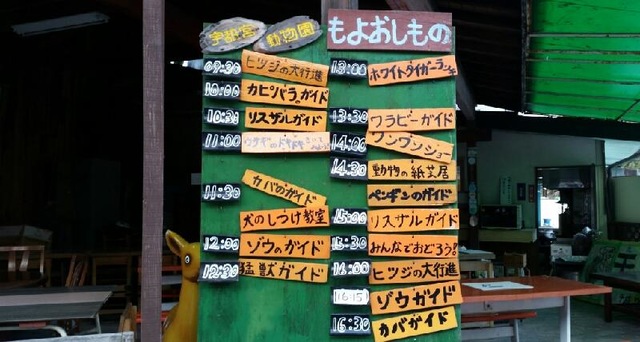 宇都宮 動物園
もよおしもの
09:30 ヒツジの大行進
10:00 カピバラガイド
10:30 リスザルガイド
11:00
11:30 カバのガイド
犬のしつけ教室
12:00 ゾウのガイド
12:30 猛獣ガイド
13:00 ホワイトタイガーランチ
13:30 ワラビーガイド
14:00 ワンワンショー
14:30 動物の紙芝居
ペンギンのガイド
15:00 リスザルガイド
15:30 みんなでおどろう!
16:00 ヒツジの大行進
16:15 ゾウガイド
16:30 カバガイド